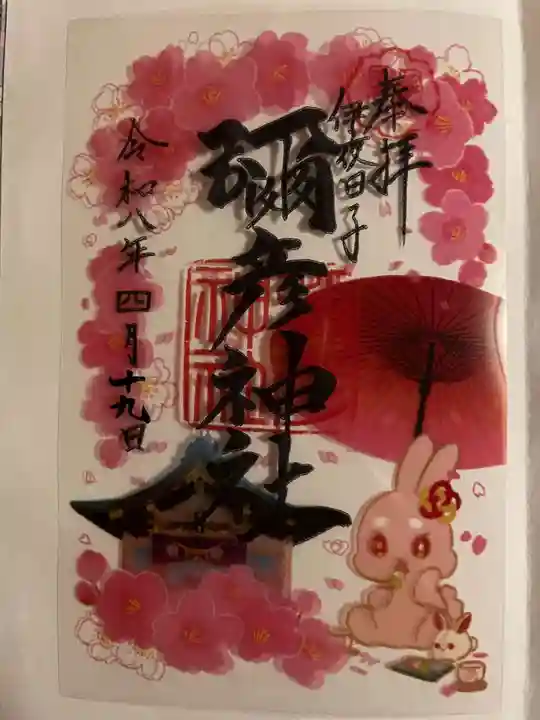 奉拝
伊夜日子
彌彦神社
令和八年四月十九日